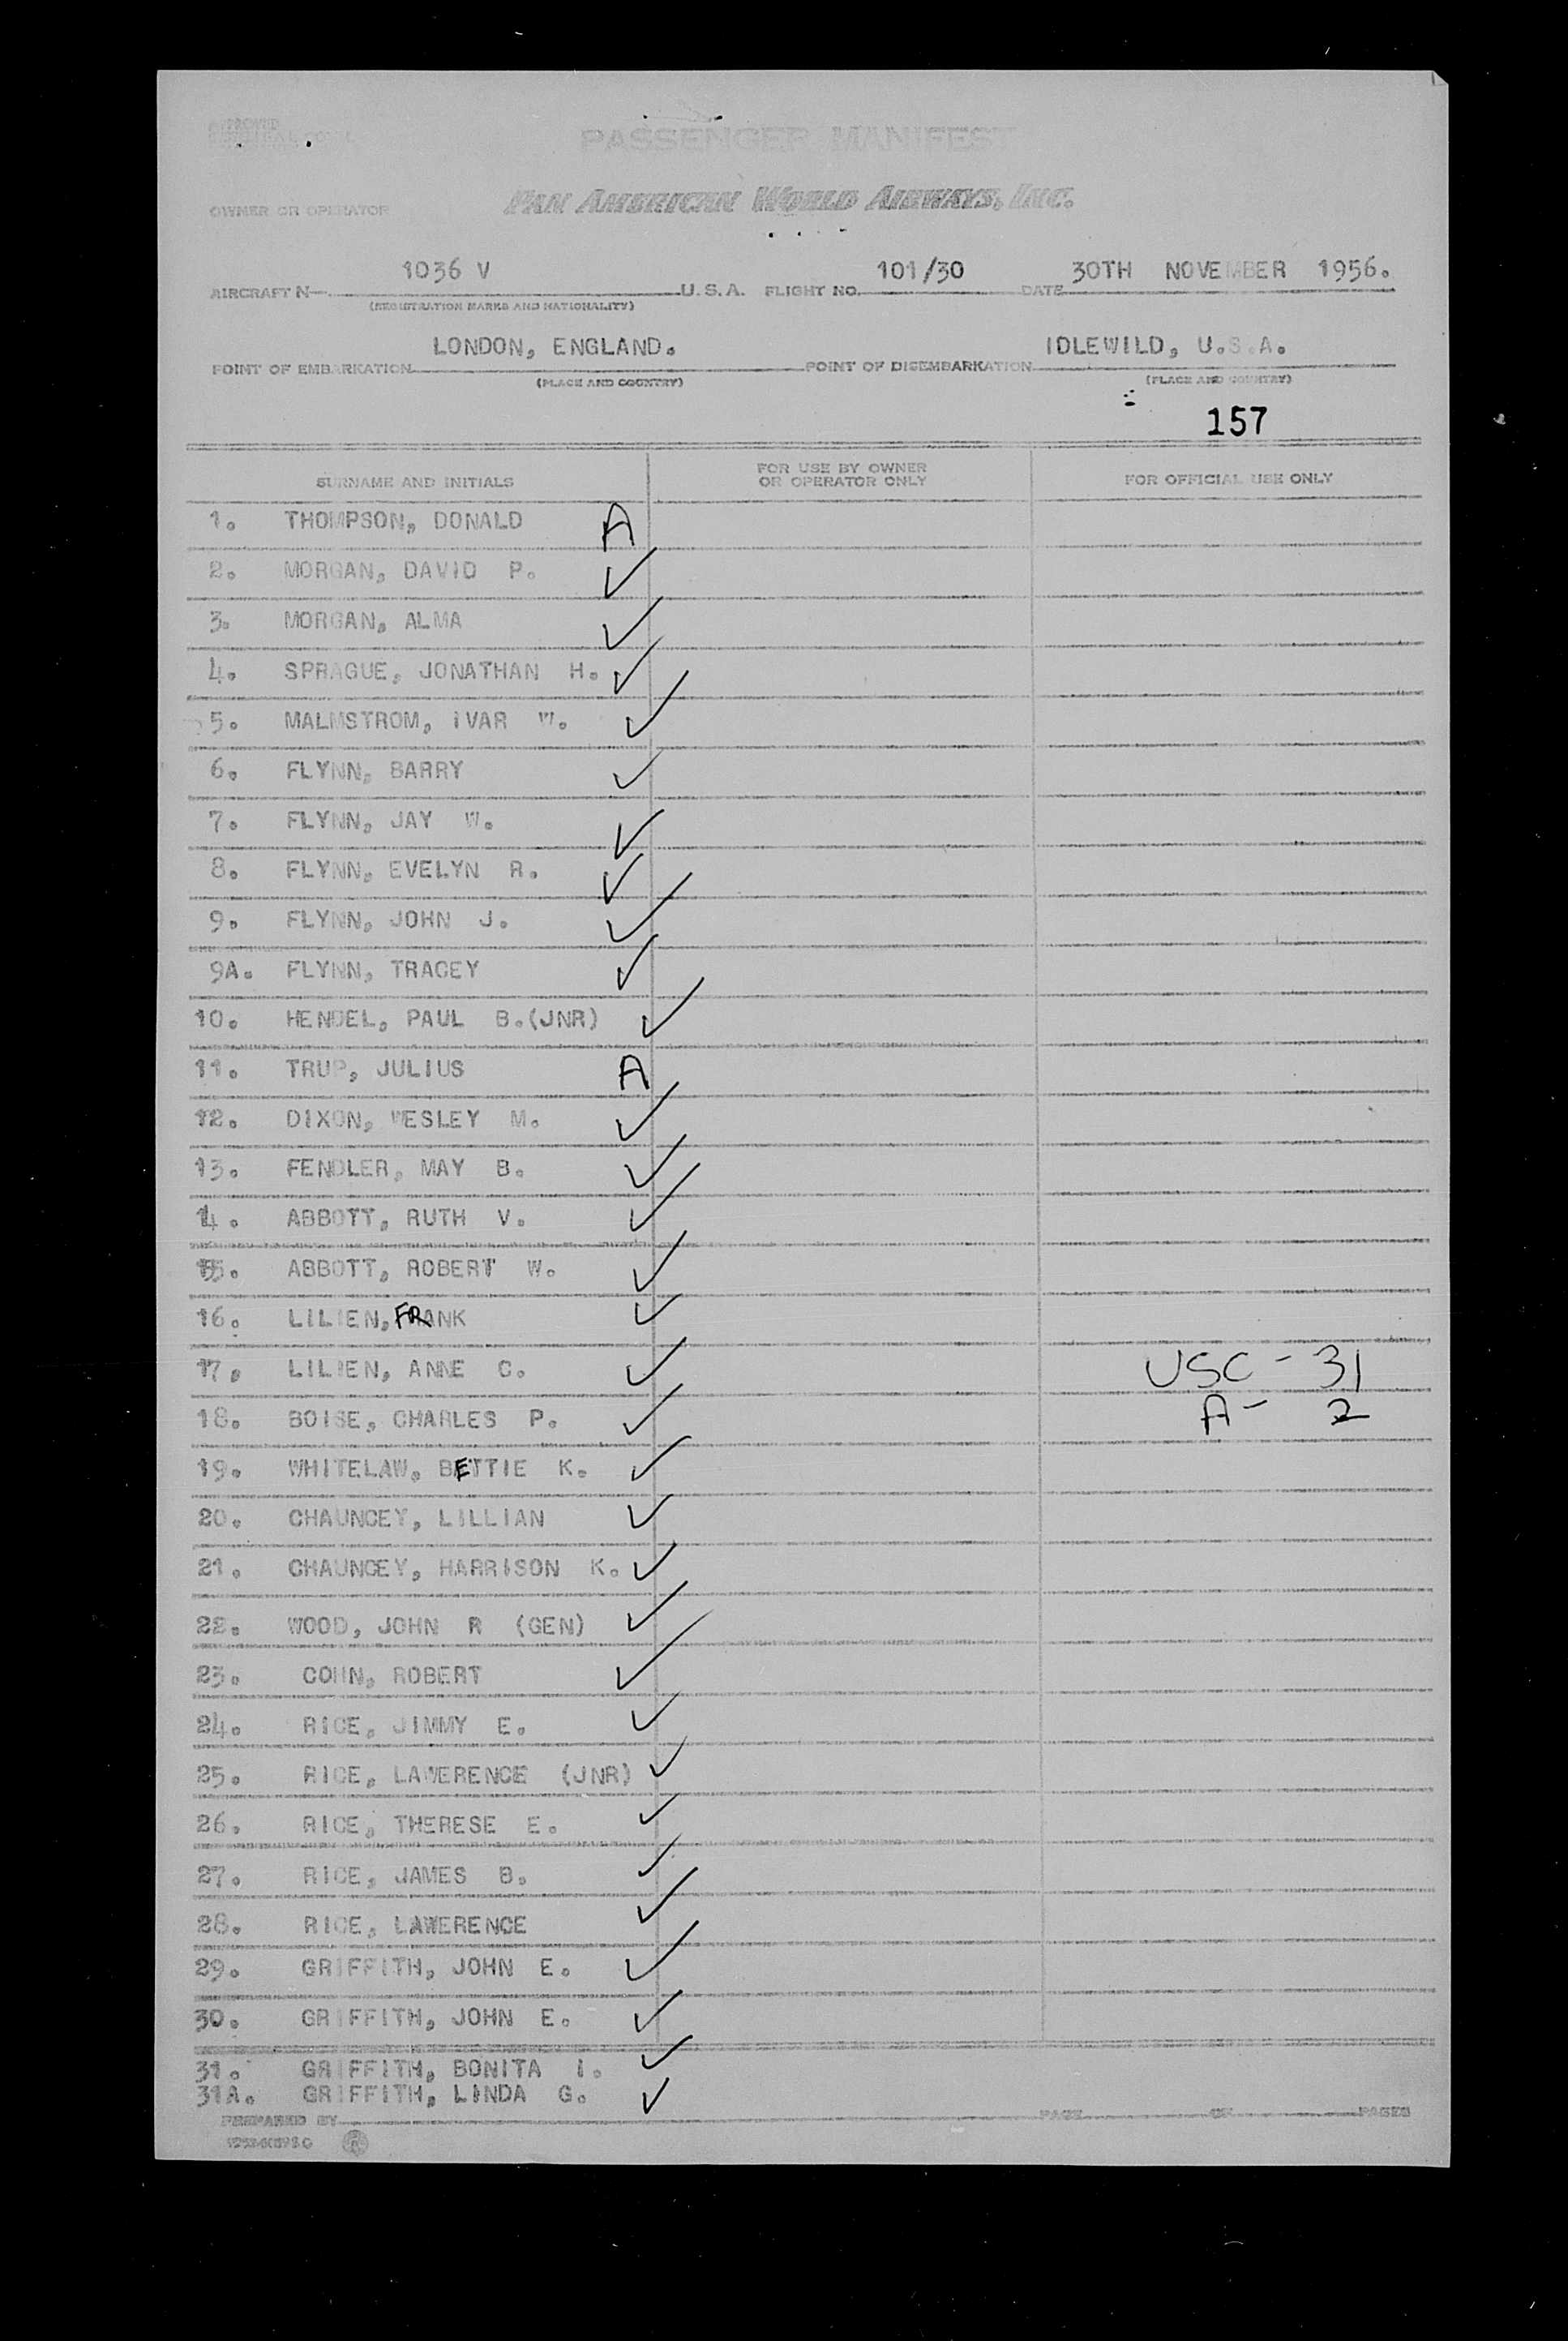 PASSENGER MANIFEST
OWNER OR OPERATOR PAN AMERICAN WORLD AIRWAYS, INC.
AIRCRAFT N— 1036 V U.S.A. FLIGHT NO. 101/30 DATE 30TH NOVEMBER 1956.
(REGISTRATION MARKS AND NATIONALITY)
POINT OF EMBARKATION LONDON, ENGLAND. POINT OF DISEMBARKATION IDLEWILD, U.S.A.
(PLACE AND COUNTRY) (PLACE AND COUNTRY)
157
SURNAME AND INITIALS FOR USE BY OWNER OR OPERATOR ONLY FOR OFFICIAL USE ONLY
1. THOMPSON, DONALD A
2. MORGAN, DAVID P. ✓
3. MORGAN, ALMA ✓
4. SPRAGUE, JONATHAN H. ✓
5. MALMSTROM, IVAR W. ✓
6. FLYNN, BARRY ✓
7. FLYNN, JAY W. ✓
8. FLYNN, EVELYN R. ✓
9. FLYNN, JOHN J. ✓
9A. FLYNN, TRACEY ✓
10. HENDEL, PAUL B.(JNR) ✓
11. TRUP, JULIUS A
12. DIXON, WESLEY M. ✓
13. FENDLER, MAY B. ✓
14. ABBOTT, RUTH V. ✓
15. ABBOTT, ROBERT W. ✓
16. LILIEN, FRANK ✓
17. LILIEN, ANNE C. ✓ USC - 31
18. BOISE, CHARLES P. ✓ A - 2
19. WHITELAW, BETTIE K. ✓
20. CHAUNCEY, LILLIAN ✓
21. CHAUNCEY, HARRISON K. ✓
22. WOOD, JOHN R (GEN) ✓
23. COHN, ROBERT ✓
24. RICE, JIMMY E. ✓
25. RICE, LAWERENCE (JNR) ✓
26. RICE, THERESE E. ✓
27. RICE, JAMES B. ✓
28. RICE, LAWERENCE ✓
29. GRIFFITH, JOHN E. ✓
30. GRIFFITH, JOHN E. ✓
31. GRIFFITH, BONITA I. ✓
31A. GRIFFITH, LINDA G. ✓
PREPARED BY PAGE OF PAGES